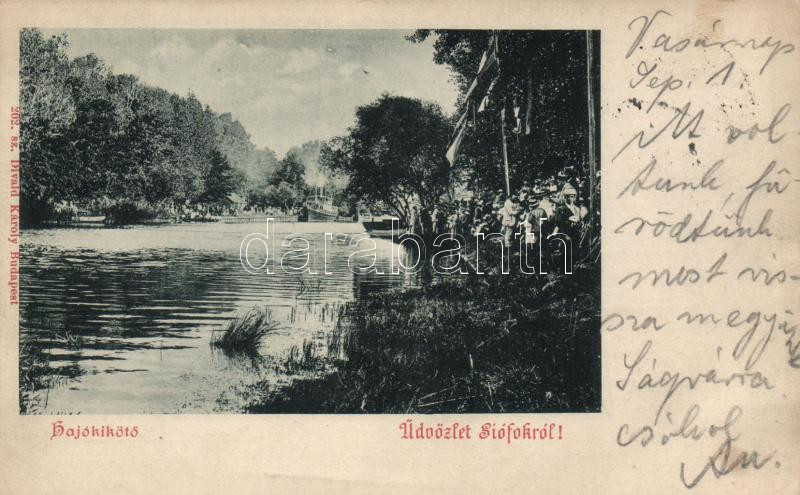 Vasárnap
Sep. 1.
Itt vol
tunk, für
rödtünk
most vis
sza megyünk
Ságvárra
csókol
202. sz. Divald Károly Budapest
darabanth
Hajókikötő
Üdvözlet Siófokról!